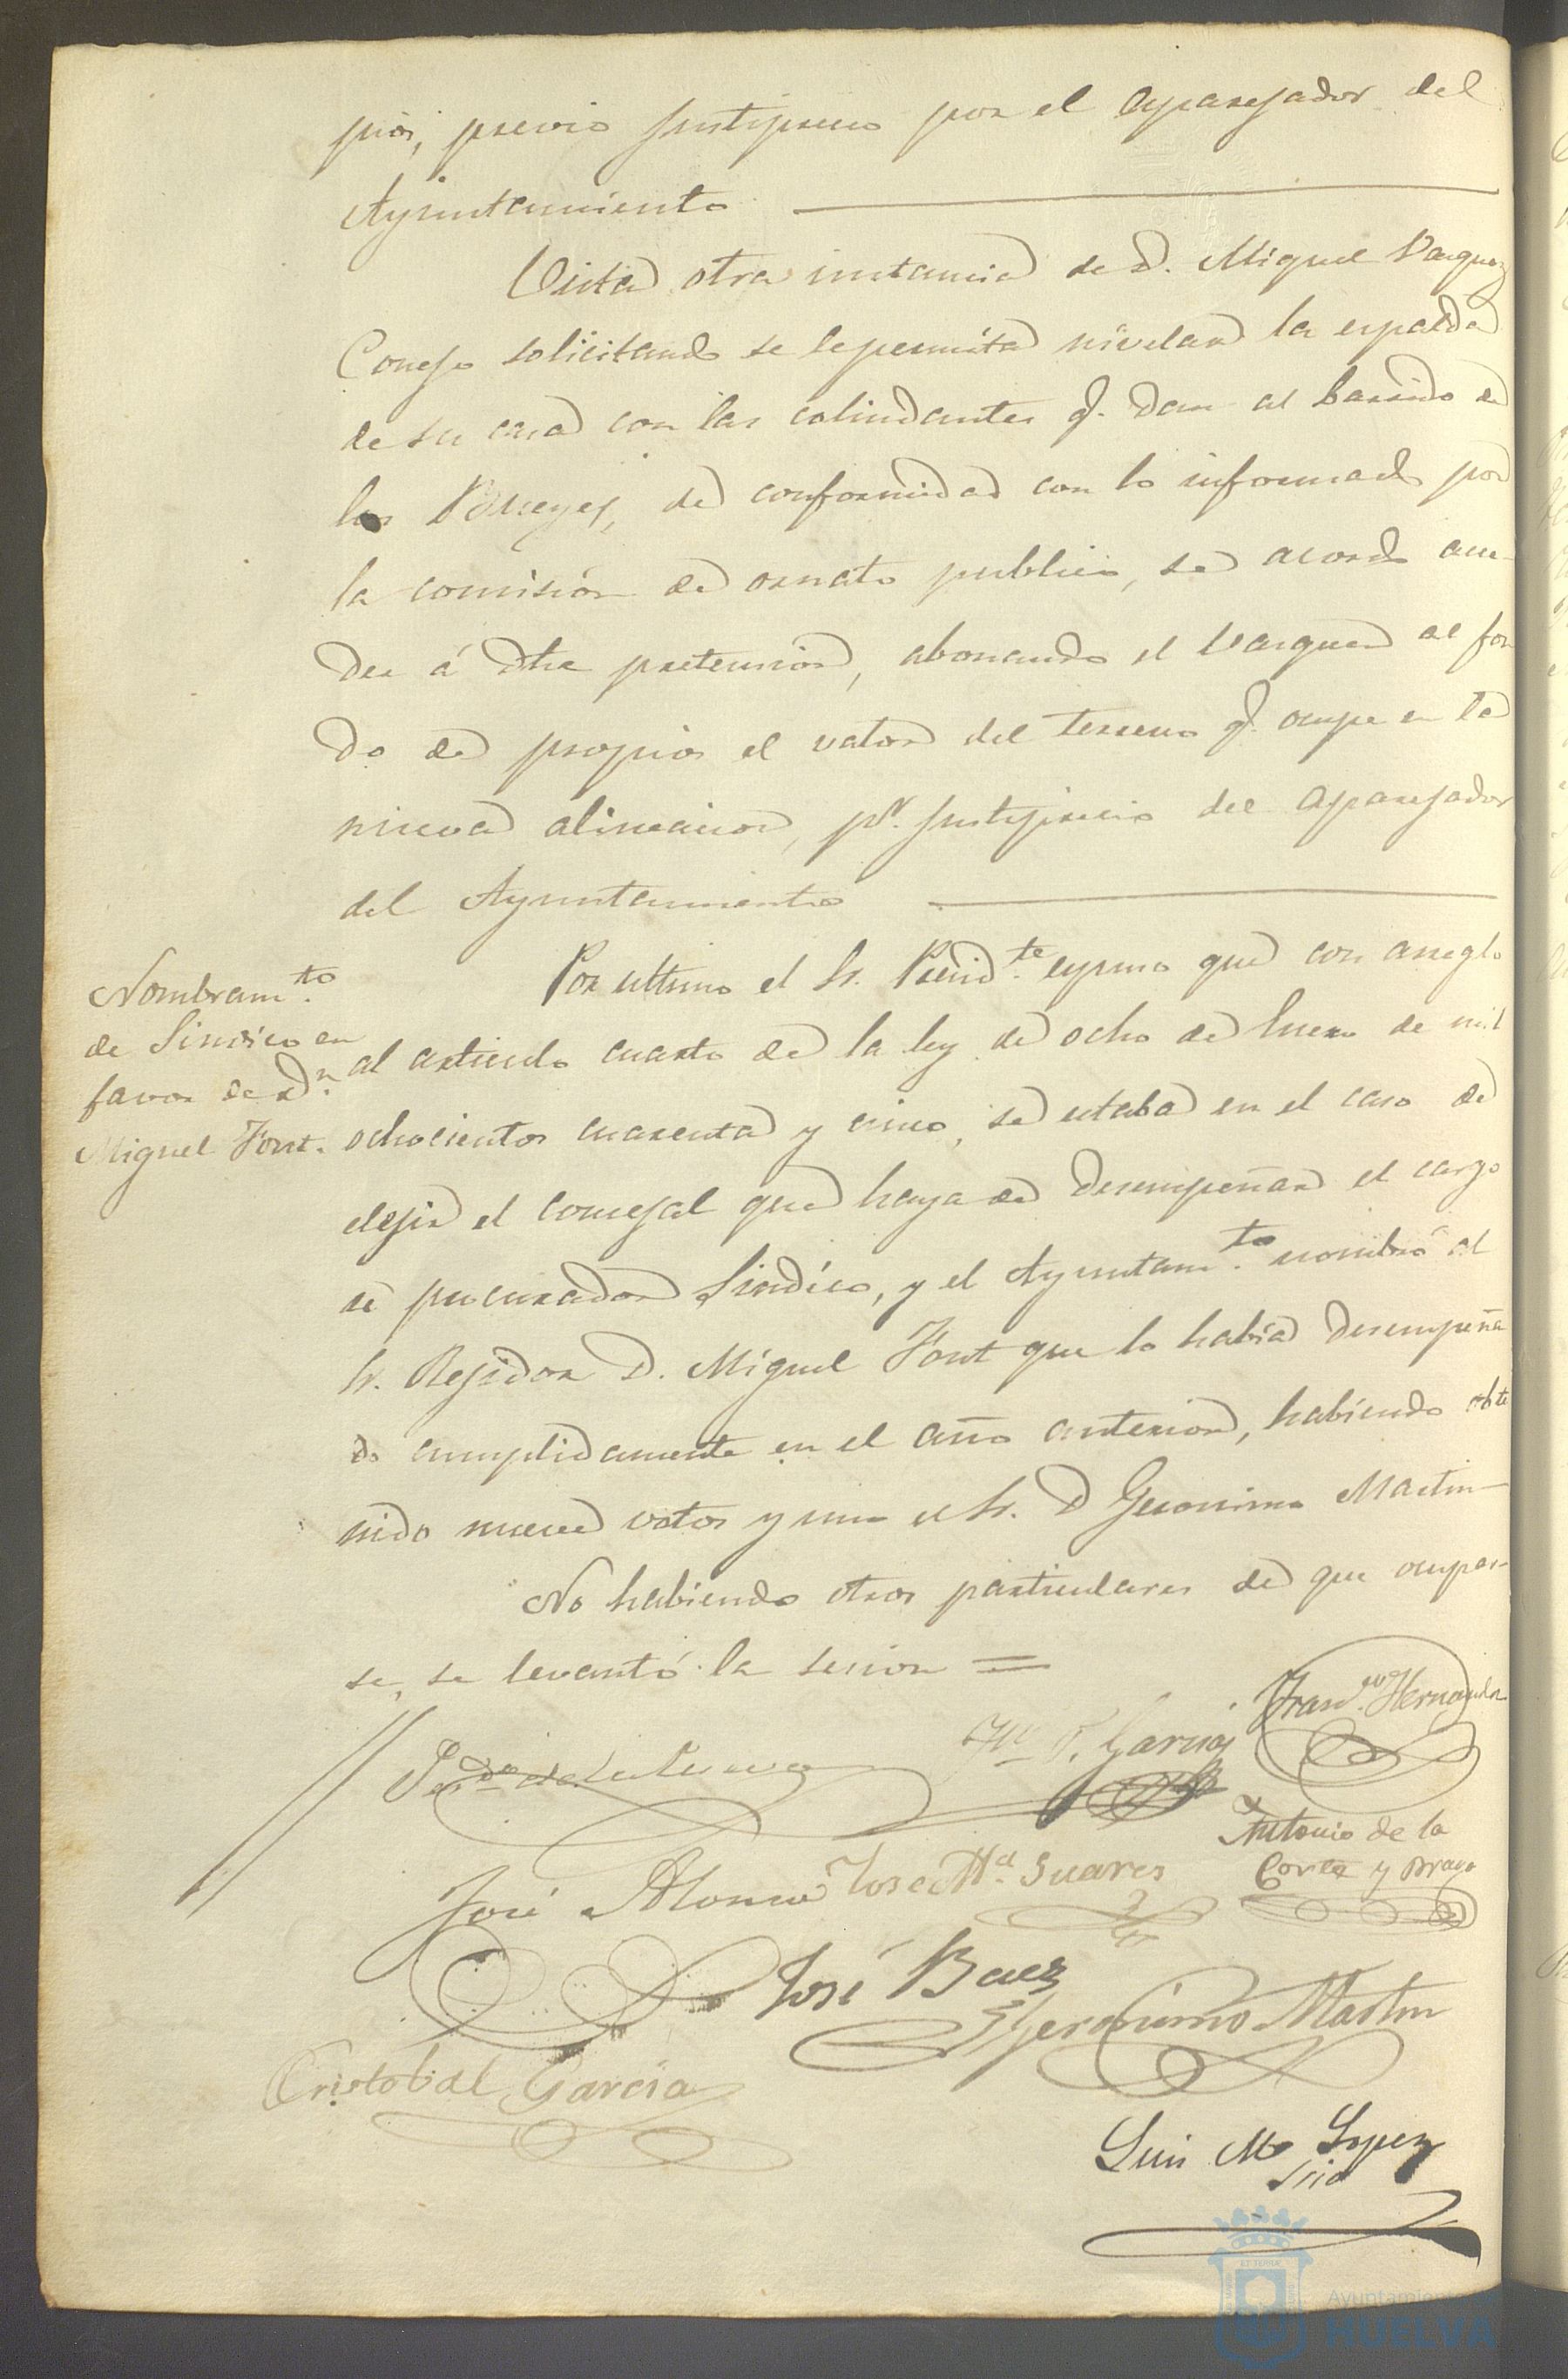 pios, previo justiprecio por el aparejador del
Ayuntamiento
Vista otra instancia de D. Miguel Vazquez
Conejo solicitando se le permita nivelar la espalda
de su casa con las colindantes q. dan al barrido de
los Bueyes, de conformidad con lo informado por
la comision de ornato publico, se acordó acce-
der á dha pretension, abonando el Vazquez al fon
do de propios el valor del terreno q. ocupe en la
nueva alineacion, pr. justiprecio del aparejador
del Ayuntamiento
Nombramto.
de Sindico en
favor de Dn.
Miguel Font.
Por ultimo el Sr. Presidte. espuso que con arreglo
al articulo cuarto de la ley de ocho de Enero de mil
ochocientos cuarenta y cinco, se estaba en el caso de
elejir el concejal que haya de desempeñar el cargo
de procurador Sindico, y el Ayuntamto. nombró al
Sr. Rejidor D. Miguel Font que lo habia desempeña
do cumplidamente en el año anterior, habiendo obte
nido nueve votos y uno el Sr. D Geronimo Martin
No habiendo otros particulares de que ocupar-
se, se levantó la sesion =
Franco. Hernandez
F. Garcia
Antonio de la
Corte y Bravo
José Alonso
Jose Ma. Suares
José Baez
Geronimo Martin
Cristobal Garcia
Luis Ma Lopez
Srio
Ayuntamiento de
HUELVA